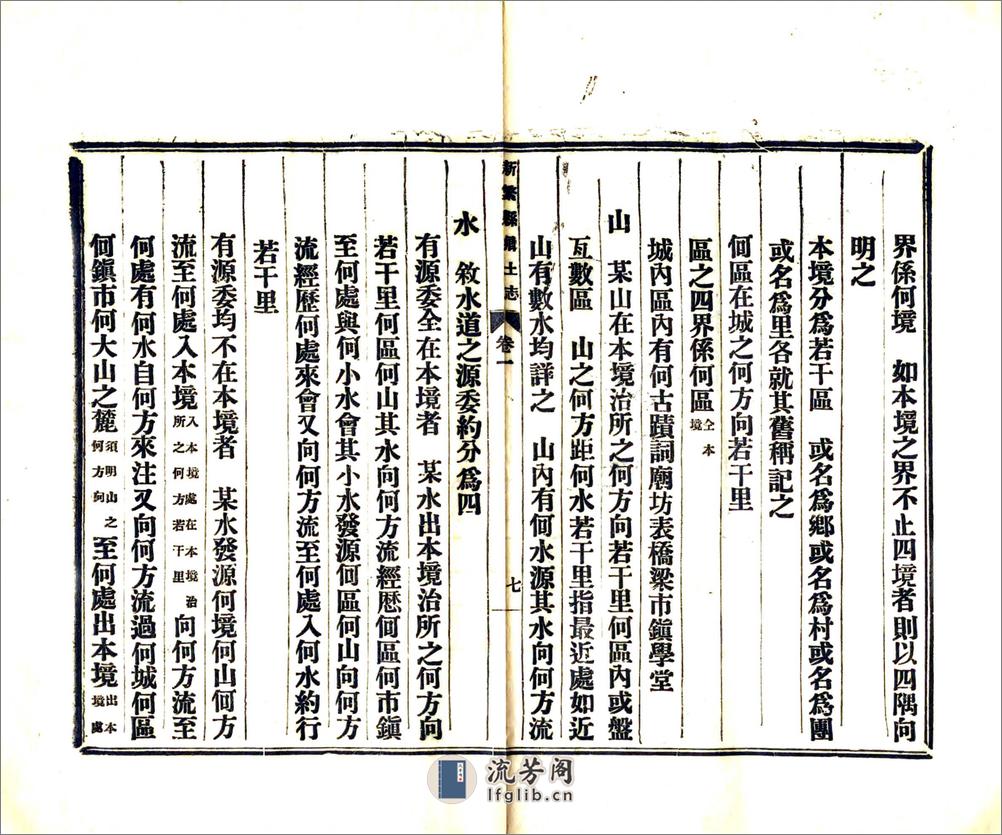 界係何境　如本境之界不止四境者則以四隅向
明之
本境分爲若干區　或名爲鄉或名爲村或名爲團
或名爲里各就其舊稱記之
何區在城之何方向若干里
區之四界係何區全本境
城內區內有何古蹟詞廟坊表橋梁市鎮學堂
山　某山在本境治所之何方向若干里何區內或盤
亙數區　山之何方距何水若干里指最近處如近
山有數水均詳之　山內有何水源其水向何方流
新繁縣鄉土志　卷一　七
水　敘水道之源委約分爲四
有源委全在本境者　某水出本境治所之何方向
若干里何區何山其水向何方流經歷何區何市鎮
至何處與何小水會其小水發源何區何山向何方
流經歷何處來會又向何方流至何處入何水約行
若干里
有源委均不在本境者　某水發源何境何山何方
流至何處入本境入本境處在本境治所之何方若干里向何方流至
何處有何水自何方來注又向何方流過何城何區
何鎮市何大山之麓須明山之何方向至何處出本境出本境處
流芳阁
lfglib.cn